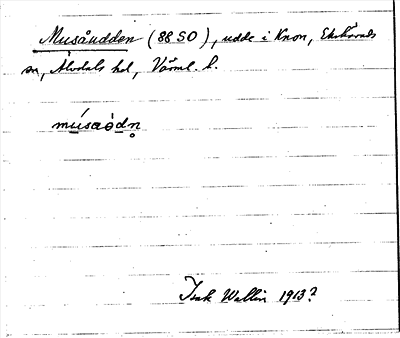 Musåudden (88 SO), udde i Knon, Ekshärads
sn, Älvdals hd, Värml. l.
músaòdn̥
Isak Wallin 1913?